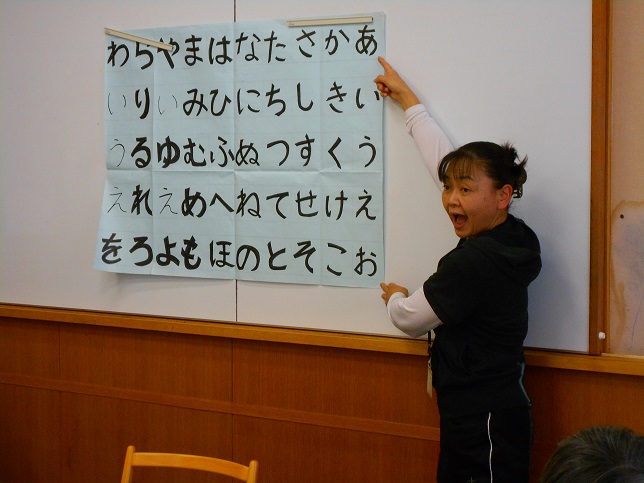 あいうえお
かきくけこ
さしすせそ
たちつてと
なにぬねの
はひふへほ
まみむめも
やいゆえよ
らりるれろ
わいうえを